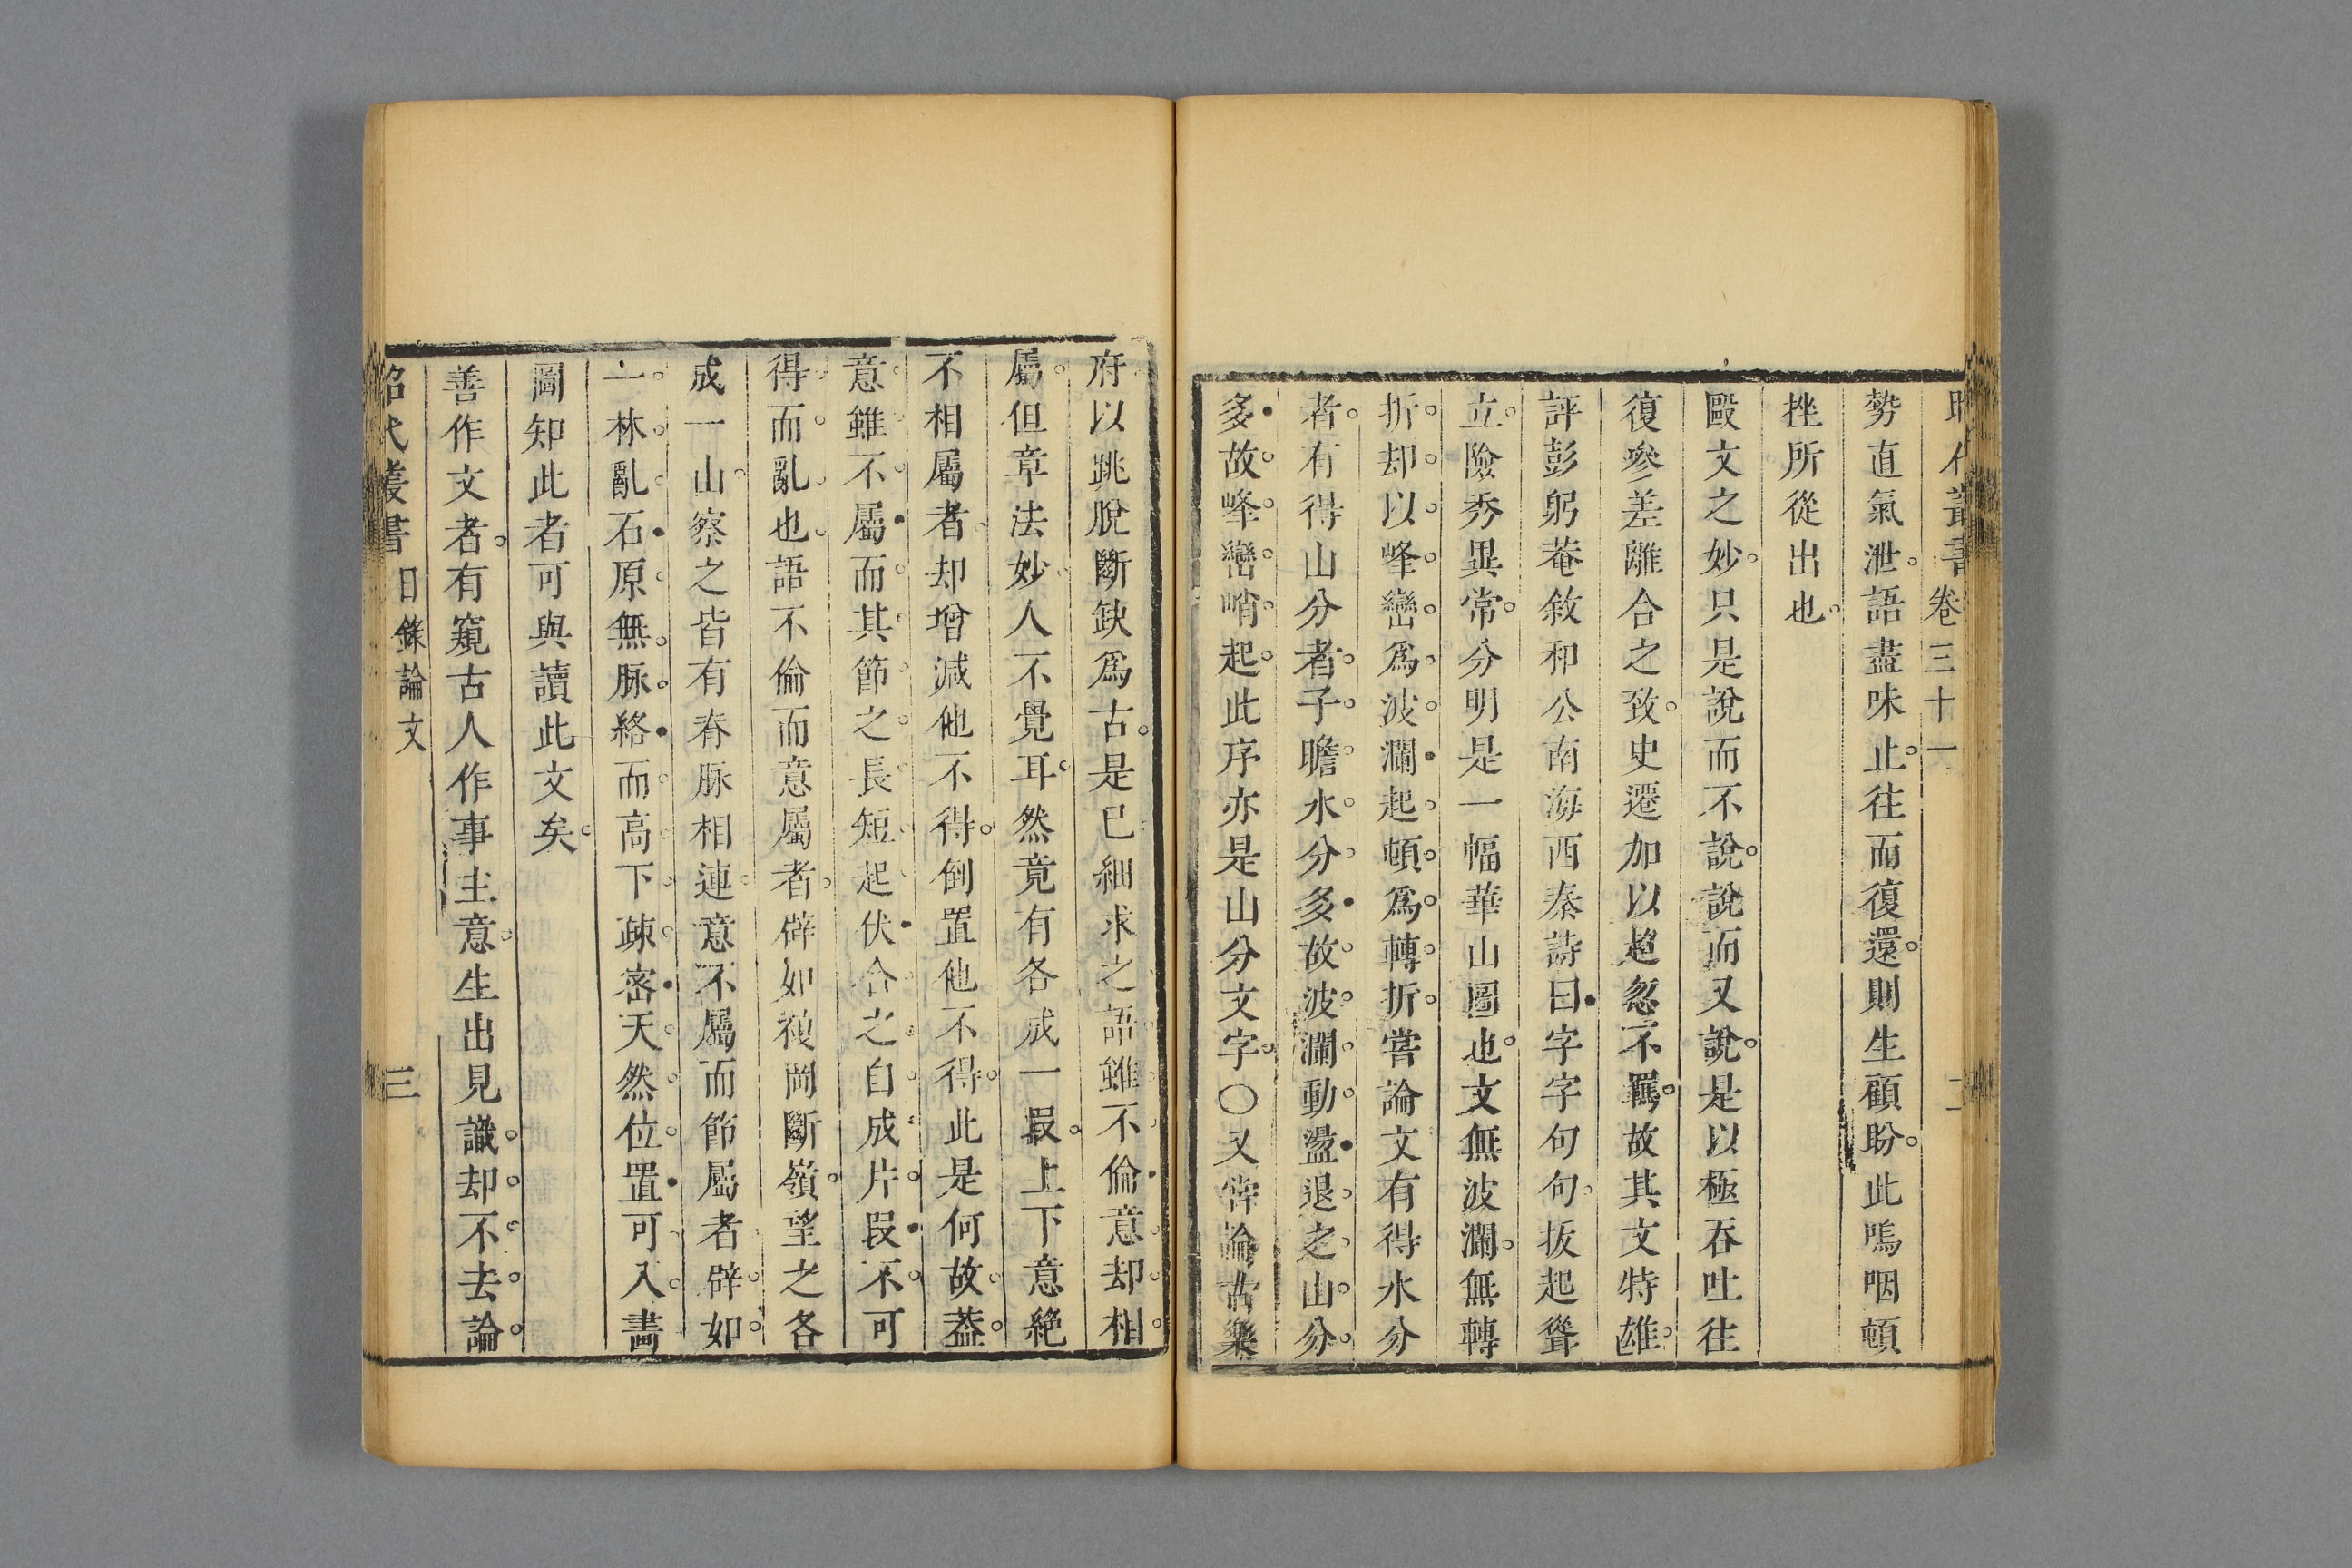 昭代叢書卷三十一 二
勢直氣泄語盡味止往而復還則生顧盼此嗚咽頓
挫所從出也
歐文之妙只是說而不說說而又說是以極吞吐往
復參差離合之致史遷加以超忽不羈故其文特雄
評彭躬菴敘和公南海西秦詩曰字字句句拔起聳
立險秀異常分明是一幅華山圖也文無波瀾無轉
折却以峰巒爲波瀾起頓爲轉折嘗論文有得水分
者有得山分者子瞻水分多故波瀾動盪退之山分
多故峰巒峭起此序亦是山分文字〇又嘗論古樂
府以跳脫斷缺爲古是已細求之語雖不倫意却相
屬但章法妙人不覺耳然竟有各成一段上下意絕
不相屬者却增減他不得倒置他不得此是何故葢
意雖不屬而其節之長短起伏合之自成片段不可
得而亂也語不倫而意屬者辟如複岡斷嶺望之各
成一山察之皆有脊脉相連意不屬而節屬者辟如
一林亂石原無脉絡而高下疎密天然位置可入畵
圖知此者可與讀此文矣
善作文者有窺古人作事主意生出見識却不去論
昭代叢書 日錄論文 三